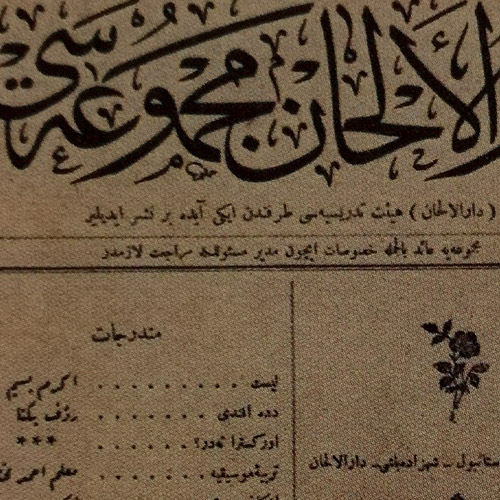 الالحان مجموعه سی
( دارالالحان ) هیئت تدریسیه‌سی طرفندن ایکی آیده بر نشر ایدیلیر
مجموعه‌یه عائد بالجمله خصوصات ایچون مدیر مسئولنه مراجعت لازمدر
مندرجات
لیست . . . . . . . . . اکرم بسیم
دده افندی . . . . . . . رؤف یکتا
اورکسترا نه‌در؟ . . . . . . ***
تربیهٔ موسیقیه . . . . . معلم احمد
ستانبول ـ شهزاده‌باشی ـ دارالالحان